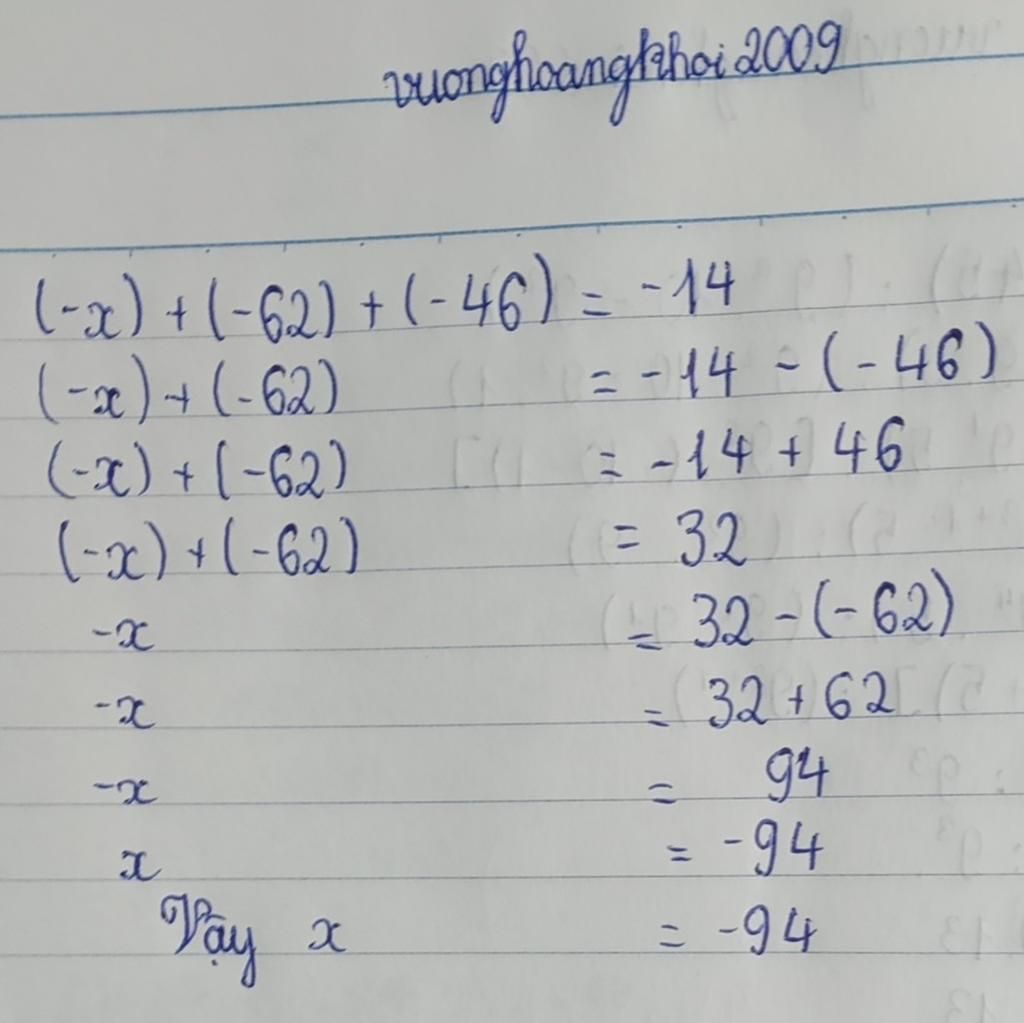 vuonghoangkhoi2009
(-x) + (-62) + (-46) = -14
(-x) + (-62) = -14 - (-46)
(-x) + (-62) = -14 + 46
(-x) + (-62) = 32
-x = 32 - (-62)
-x = 32 + 62
-x = 94
x = -94
Vậy x = -94